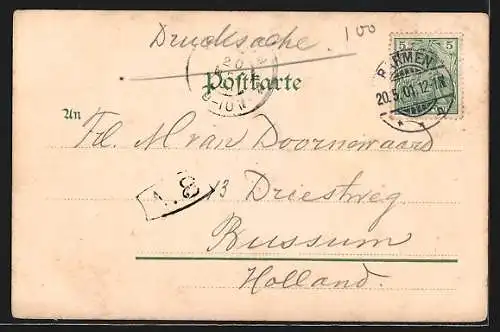 Drucksache. 100
5 5
BARMEN
20.5.01.12-1N
20
8-10N
Postkarte
An
Frl. M van Doornewaard
13 Driestweg
Bussum
Holland.